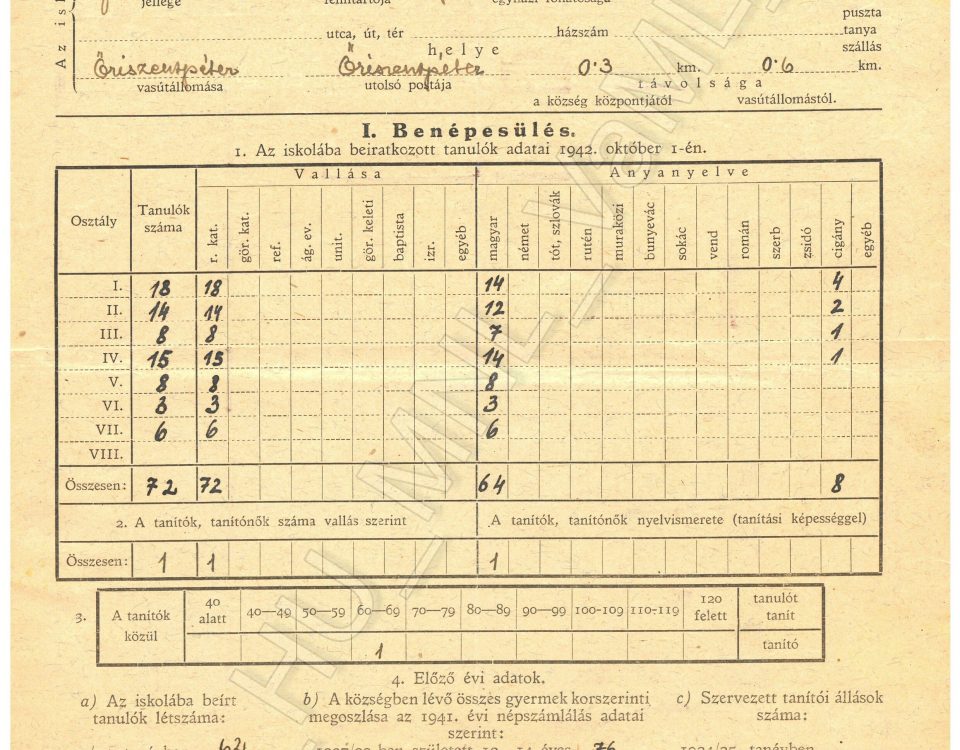 jellege fenntartója egyházi fönhatósága
Az isk
utca, út, tér házszám puszta
tanya
szállás
helye
Őriszentpéter Őriszentpéter 0·3 km. 0·6 km.
vasútállomása utolsó postája távolsága
a község központjától vasútállomástól.
I. Benépesülés.
1. Az iskolába beiratkozott tanulók adatai 1942. október 1-én.
Osztály Tanulók száma Vallása Anyanyelve
r. kat. gör. kat. ref. ág. ev. unit. gör. keleti baptista izr. egyéb magyar német tót, szlovák rutén muraközi bunyevác sokác vend román szerb zsidó cigány egyéb
I. 18 18 14 4
II. 14 14 12 2
III. 8 8 7 1
IV. 15 15 14 1
V. 8 8 8
VI. 3 3 3
VII. 6 6 6
VIII.
Összesen: 72 72 64 8
2. A tanítók, tanítónők száma vallás szerint A tanítók, tanítónők nyelvismerete (tanítási képességgel)
Összesen: 1 1 1
3. A tanítók közül 40 alatt 40—49 50—59 60—69 70—79 80—89 90—99 100-109 110-119 120 felett tanulót tanít
1 tanító
4. Előző évi adatok.
a) Az iskolába beírt b) A községben lévő összes gyermek korszerinti c) Szervezett tanítói állások
tanulók létszáma: megoszlása az 1941. évi népszámlálás adatai száma:
szerint:
76
HU_MNL_VaML